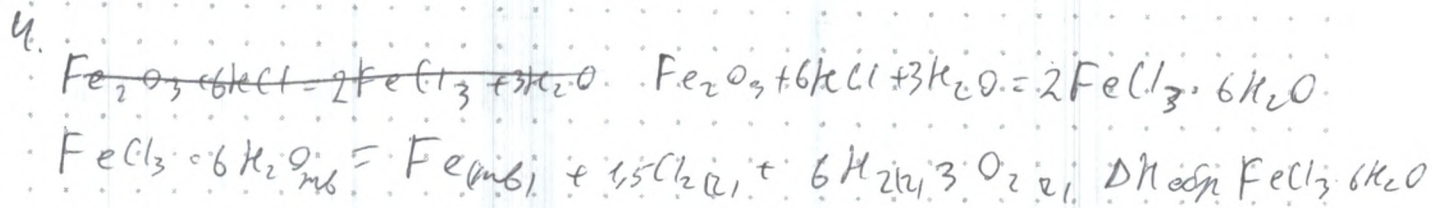 4.
Fe₂O₃+6HCl=2FeCl₃+3H₂O Fe₂O₃+6HCl+3H₂O=2FeCl₃·6H₂O
FeCl₃·6H₂O тв = Fe(тв) + 1,5Cl₂(г) + 6H₂(г) 3O₂ г) ΔHобр FeCl₃·6H₂O